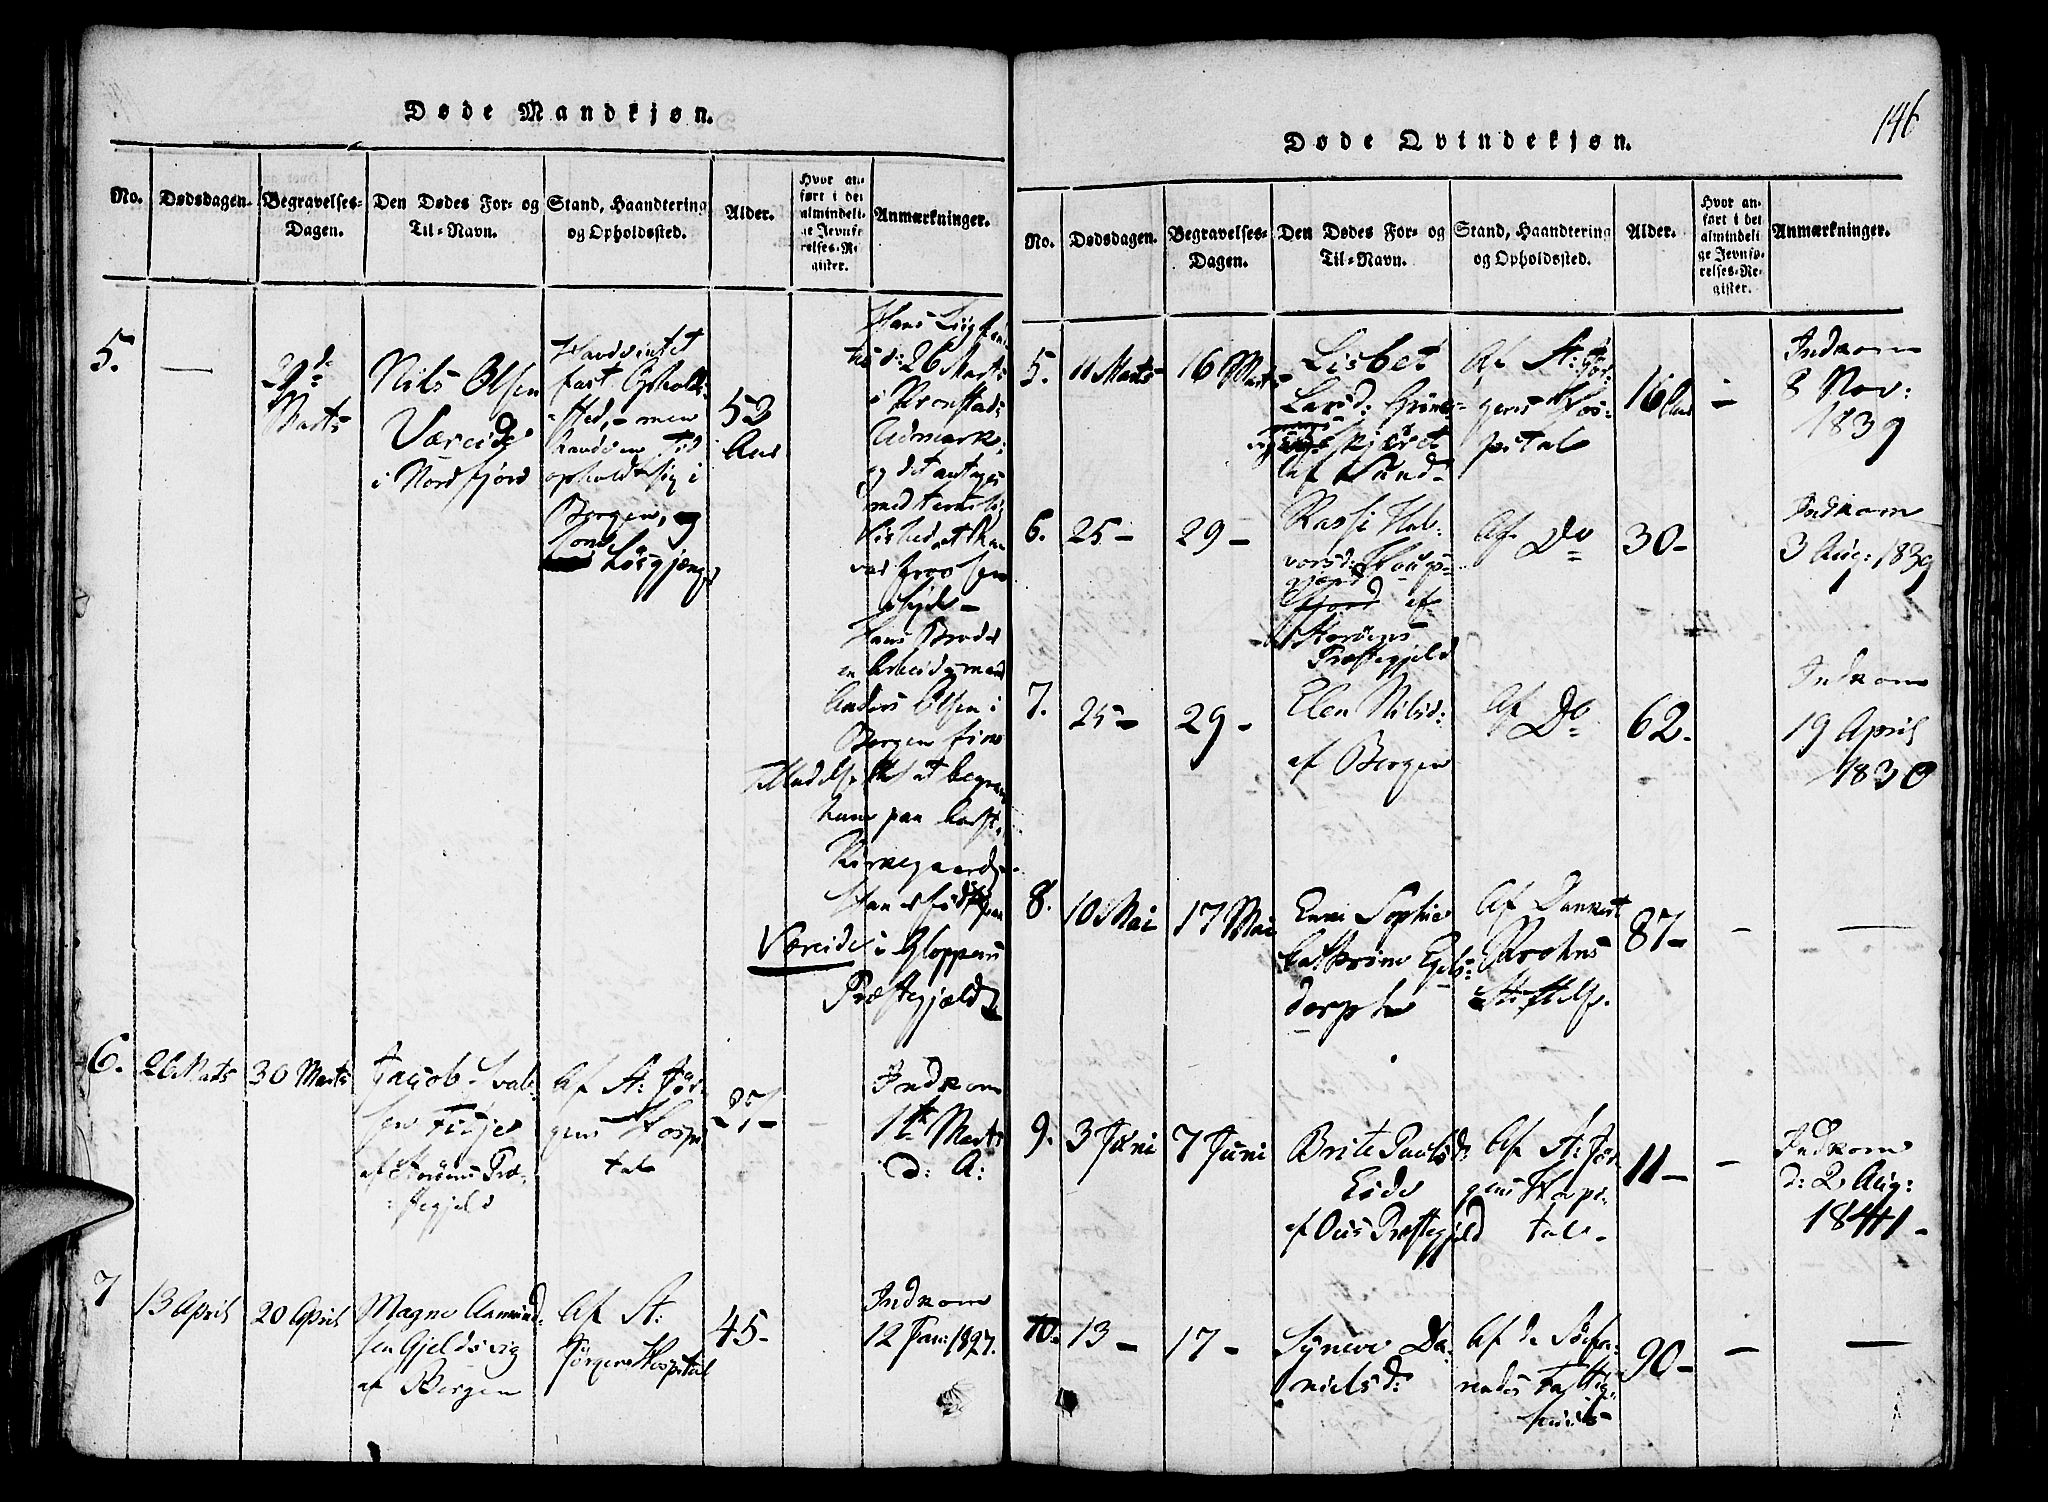 Døde Mandkjøn.
No.
Dødsdagen.
Begravelses-
Dagen.
Den Dødes For- og
Til-Navn.
Stand, Haandtering
og Opholdssted.
Alder.
Hvor an-
ført i det
almindeli-
ge Jevnfø-
relses-Re-
gister.
Anmærkninger.
5.
—
29de
Marts
Nils Olsen
Væreide
i Nordfjord
fast Opholds-
sted, - men
opholdt sig i
Bergen, og
Løsgjænger
53
Aar
Hans Liig
26 Marts
i
Udmark,
og det antages
med
Vished at han
var frossen
ihjel -
Hans Broder
en Arbeidsmand
Anders Olsen i
Bergen
Tilladelse til at
ham paa
Kirkegaard,
Han er født paa
Væreide i Gloppens
Præstegjæld
6.
26 Marts
30 Marts
Jacob
af Storøens Præ-
stegjeld
Af St: Jør-
gens Hospi
tal
27 -
Indkom
1te Marts
d: A:
7
13 April
20 April
Magne Aamund-
sen Gjeldsvig
af Bergen
Af St:
Jørgens Hospital
45 -
Indkom
12 Jan: 1827.
146
Døde Qvindekjøn.
No.
Dødsdagen.
Begravelses-
Dagen.
Den Dødes For- og
Til-Navn.
Stand, Haandtering
og Opholdssted.
Alder.
Hvor an-
ført i det
almindeli-
ge Jevnfø-
relses-Re-
gister.
Anmærkninger.
5.
11 Marts
16 Marts
Lisbet
Larsd:
af Sund -
Af St: Jør-
gens Hos-
pital
16 Aar
—
Indkom
8 Nov:
1839
6.
25 -
29 -
Hal-
vorsd:
af
Storøens
Præstegjeld
Af Do
30 -
Indkom
3 Aug: 1839
7.
25 -
29 -
Elen Nilsd:
af Bergen
Af Do
62 -
Indkom
19 April
1830
8.
10 Mai
17 Mai
Sophie
Cathrine Egels-
dorph
Af Dankert
Krohns
Stiftelse.
87 -
—
—
9.
3 Juni
7 Juni
Brite Paulsd:
Eide
af Ous Præstegjeld
Af St: Jør-
gens Hospi-
tal -
11 -
—
Indkom
d: 2 Aug:
1841 -
10.
13 -
17 -
Syneve Da-
nielsd:
Af de Søefa-
rendes Fattig-
huus
90 -
—
—